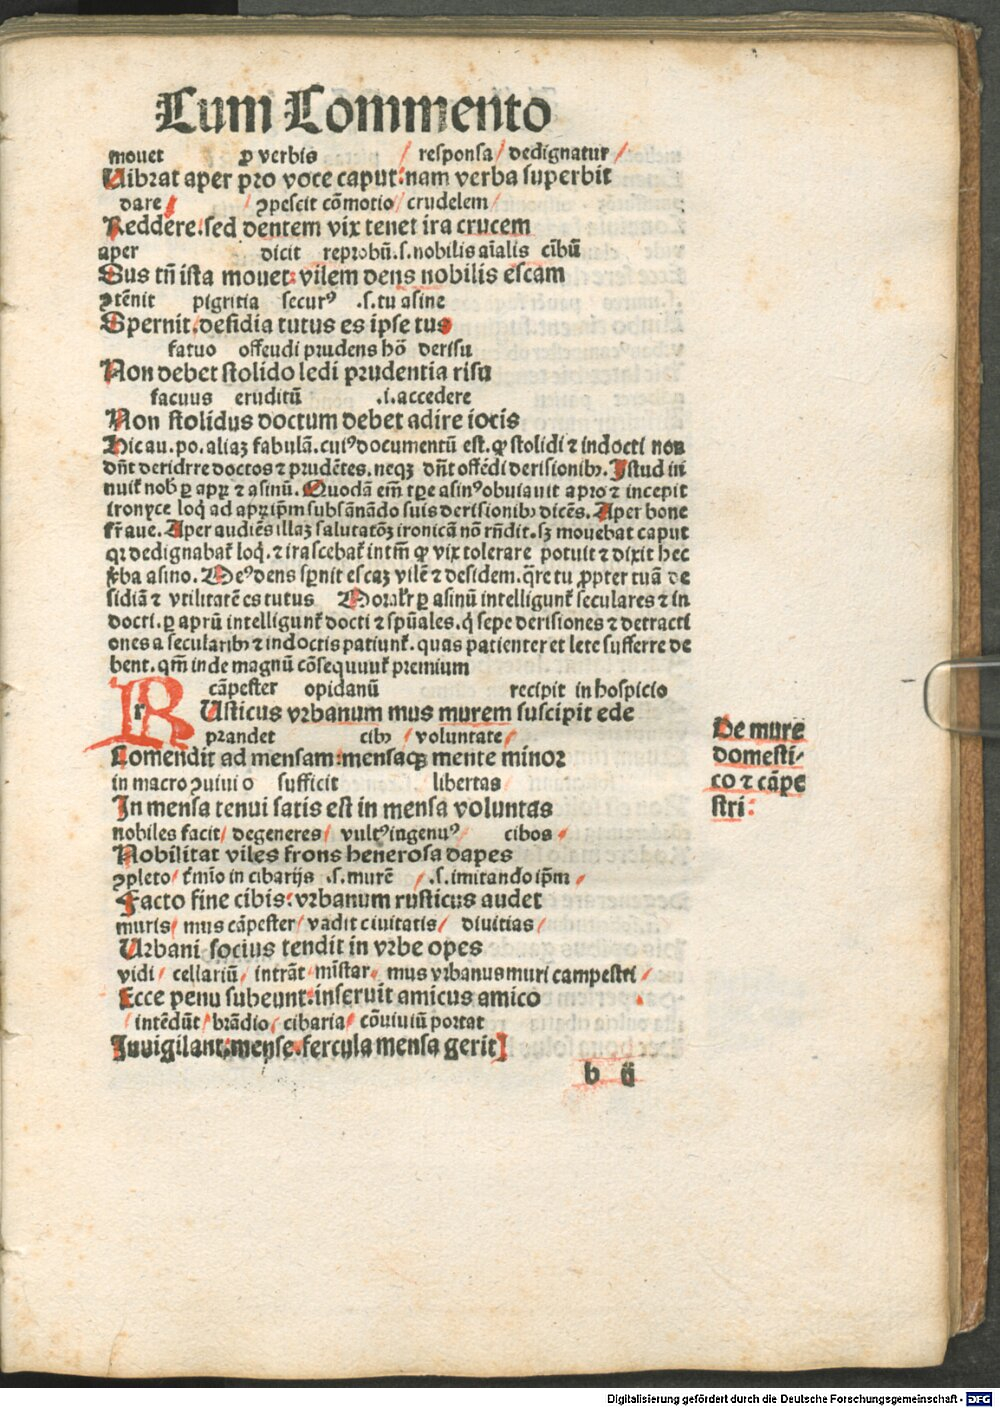 Cum Commento
mouet ꝓ verbis responsa dedignatur
Uibrat aper pro voce caput: nam verba superbit
dare ꝯpescit cōmotio crudelem
Reddere: sed dentem vix tenet ira crucem
aper dicit reprobū .s. nobilis aīalis cībū
Sus tñ ista mouet: vilem dens nobilis escam
ꝯtēnit pigritia securꝰ .s. tu asine
Spernit. desidia tutus es ipse tua
fatuo offendi prudens hō derisu
Non debet stolido ledi prudentia risu
facuus eruditū .i. accedere
Non stolidus doctum debet adire iocis
Hic au. po. aliaꝫ fabulā. cuiꝰ documentū est. ꝙ stolidi ⁊ indocti non
dn̄t deridrre doctos ⁊ prudētes. neqꝫ dn̄t offēdi derisionibꝰ. Istud in
nuit nob ꝑ apꝝ ⁊ asinū. Quodā em̄ tꝑe asinꝰ obuiauit apro ⁊ incepit
ironyce loq̄ ad apꝝ ip̄m subsānādo suis derisionibꝰ dicēs. Aper bone
fr̄ aue. Aper audiēs illaꝫ salutatōꝫ ironicā nō rn̄dit. sꝫ mouebat caput
qꝛ dedignabat̄ loq̄. ⁊ irascebat̄ intm̄ ꝙ vix tolerare potuit ⁊ dixit hec
v̄ba asino. Meꝰ dens sꝑnit escaꝫ vilē ⁊ desidem. q̄re tu ꝓpter tuā de
sidiā ⁊ vtilitatē es tutus Moralr̄ ꝑ asinū intelligunt̄ seculares ⁊ in
docti. ꝑ aprū intelligunt̄ docti ⁊ spūales. q̄ sepe derisiones ⁊ detracti
ones a secularibꝰ ⁊ indoctis patiunt̄. quas patienter et lete sufferre de
bent. qm̄ inde magnū cōsequuut̄ premium
cāpester opidanū recipit in hospicio
RUsticus vrbanum mus murem suscipit ede
prandet cibꝰ voluntate
Comendit ad mensam: mensaqꝫ mente minor
in macro ꝯuiuio sufficit libertas
In mensa tenui satis est in mensa voluntas
nobiles facit degeneres vultꝰ ingenuꝰ cibos
Nobilitat viles frons henerosa dapes
ꝯpleto t̄mīo in cibarijs .s. murē .s. imitando ip̄m
Facto fine cibis: vrbanum rusticus audet
muris mus cāpester vadit ciuitatis diuitias
Urbani socius tendit in vrbe opes
vidi cellariū intrāt mīstar mus vrbanus muri campestri
Ecce penu subeunt: inseruit amicus amico
intēdūt brādio cibaria cōuiuiū portat
Inuigilant. mense. fercula mensa gerit
De mure
domesti-
co ⁊ cāpe
stri:
b ij
Digitalisierung gefördert durch die Deutsche Forschungsgemeinschaft - DFG